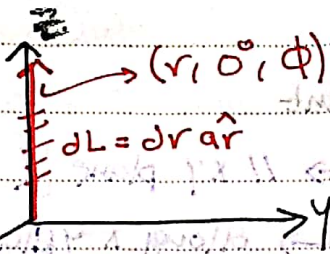 Z
(r, 0°, φ)
dL = dr âr
Y